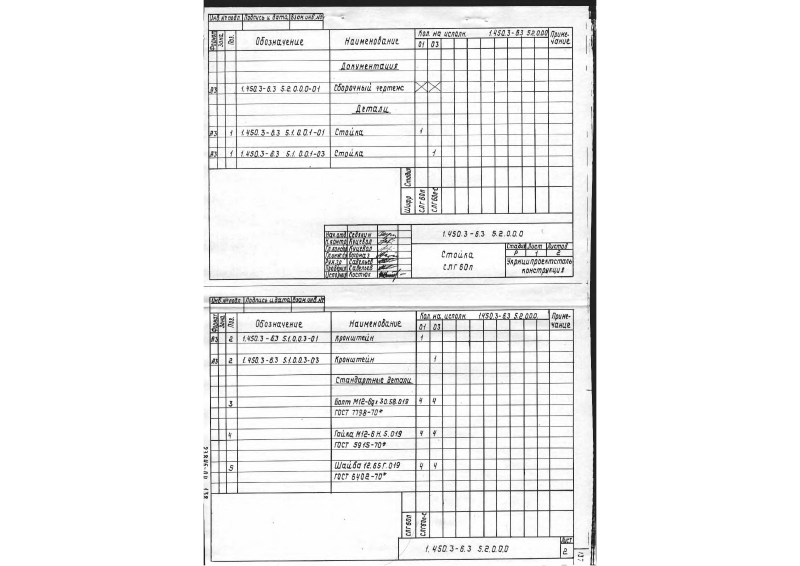 Инв.№ подл. Подпись и дата Взам.инв.№
Формат Зона Поз. Обозначение Наименование Кол. на исполн. 1.450.3-6.3 5.2.0.0.0 Приме-
01 03 чание
Документация
А3 1.450.3-6.3 5.2.0.0.0-01 Сборочный чертеж
Детали
А3 1 1.450.3-6.3 5.1.0.0.1-01 Стойка 1
А3 1 1.450.3-6.3 5.1.0.0.1-03 Стойка 1
Шифр Стадия
СЛГ 60п СЛГ 60п-С
1.450.3-6.3 5.2.0.0.0
Нач.отд. Севекин
Н.контр. Куцевал
Гл.констр. Куцевал
Савельев
Проверил Савельев
Исполнил Костюк
Стойка
СЛГ 60п
Стадия Лист Листов
Р 1 2
Укрниипроектсталь
конструкция
Инв.№ подл. Подпись и дата Взам.инв.№
Формат Зона Поз. Обозначение Наименование Кол. на исполн. 1.450.3-6.3 5.2.0.0.0. Приме-
01 03 чание
А3 2 1.450.3-6.3 5.1.0.0.3-01 Кронштейн 1
А3 2 1.450.3-6.3 5.1.0.0.3-03 Кронштейн 1
Стандартные детали
3 Болт М12-6gх30.58.019 4 4
ГОСТ 7798-70*
4 Гайка М12-6Н.5.019 4 4
ГОСТ 5915-70*
5 Шайба 12.65Г.019 4 4
ГОСТ 6402-70*
СЛГ 60п СЛГ60п-С
1.450.3-6.3 5.2.0.0.0
Лист
2